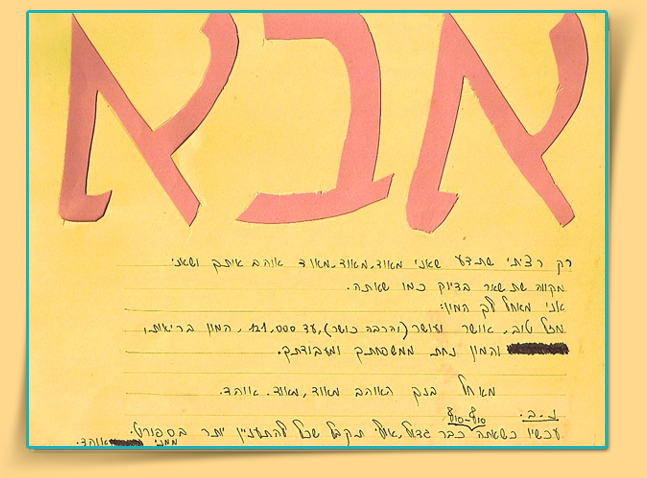 אבא
רק רציתי שתדע שאני מאוד,מאוד,מאוד אוהב אותך ושאני
מקווה שתשאר בדיוק כמו שאתה.
אני מאחל לך המון:
מזל טוב, אושר ועושר (והרבה כושר), עד 121,000, המון בריאות,
והמון נחת ממשפחתך ומעבודתך.
מאחל בנך האוהב מאוד,מאוד. אוהד.
נ.ב. סוף-סוף
עכשיו כשאתה כבר גדול, אולי תקבל שכל להתעניין יותר בספורט.
ממני אוהד.